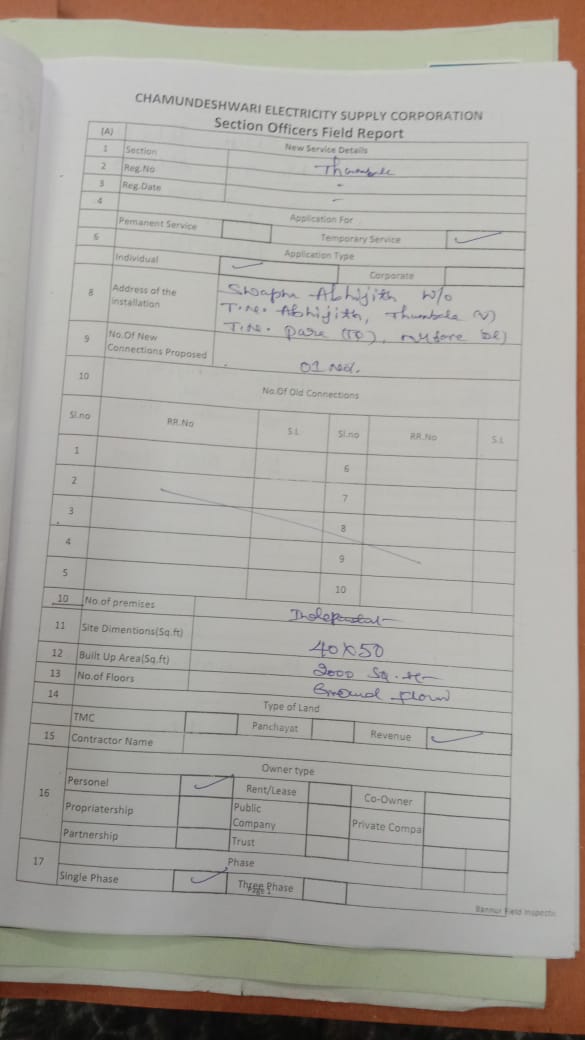 CHAMUNDESHWARI ELECTRICITY SUPPLY CORPORATION
Section Officers Field Report
(A) New Service Details
1 Section Thumbale
2 Reg.No -
3 Reg.Date -
4 Application For
Pemanent Service Temporary Service ✓
6 Application Type
Individual ✓ Corporate
8 Address of the installation Swapna Abhijith W/o
T.N. Abhijith, Thumbale (V)
T.N. pura (TQ), mysore (D)
9 No.Of New Connections Proposed 01 No.
10 No.Of Old Connections
Sl.no RR.No S.L Sl.no RR.No S.L
1 6
2 7
3 8
4 9
5 10
10 No.of premises
11 Site Dimentions(Sq.ft) 40X50
12 Built Up Area(Sq.ft) 2000 Sq.ft
13 No.of Floors Ground floor
14 Type of Land
TMC Panchayat Revenue ✓
15 Contractor Name
16 Owner type
Personel ✓ Rent/Lease Co-Owner
Propriatership Public Company Private Compa
Partnership Trust
17 Phase
Single Phase ✓ Three Phase
Page 1
Bannur Field Inspectio